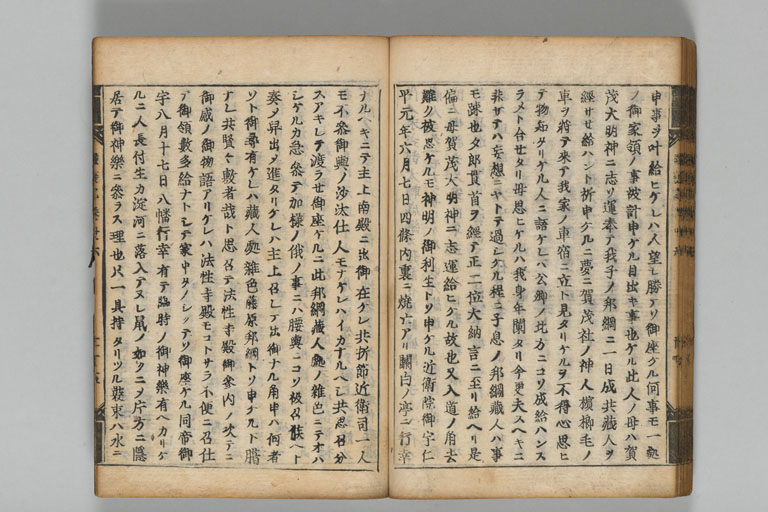 申事ヲ叶給ヒケレハ人望モ勝テソ御座ケル何事モ一処
ノ御家領ノ事被計申ケル目出キ事也ケル此人ノ母ハ賀
茂大明神ニ志ヲ運奉テ我子ノ邦綱ニ一日成共蔵人ヲ
経サセ給ハント祈申ケルニ夢ニ賀茂社ノ神人檳榔毛ノ
車ヲ将テ来テ我家ノ車宿ニ立ト見タリケルヲ不得心思ヒ
テ物知タリケル人ニ語ケレハ公卿ノ北方ニコソ成給ハンス
ラメト合セタリ母思ヒケルハ我身年闌タリ今更夫スヘキニ
非サテハ妄想ニヤトテ過シケル程ニ子息ノ邦綱蔵人ハ事
モ疎也夕郎貫首ヲ経テ正二位大納言ニ至リ給ヘリ是
偏ニ母賀茂大明神ニ志運給ヒケル故也又入道ノ肩去
難ク被思ケルモ神明ノ御利生トソ申ケル近衛院御宇仁
平元年六月七日四條内裏ニ焼亡アリ関白ノ亭ニ行幸
ナルヘキニテ主上南殿ニ出御在ケレ共折節近衛司一人
モ不参御輿ノ沙汰仕人モナケレハイカナルヘシ共思召分
スアキレテ渡ラセ御座ケルニ此邦綱蔵人処ノ雑色ニテオハ
シケルカ急参テ加様ノ俄ノ事ニハ腰輿ニコソ被召候ヘト
奏メ舁出メ進タリケレハ主上召レテ出御ナル角申ハ何者
ソト御尋有ケレハ蔵人処雑色藤原邦綱トソ申ケル下臈
ナレ共賢々敷者哉ト思召テ法性寺殿御参内ノ次テニ
御感ノ御物語アリケレハ法性寺殿モコトサラ不便ニ召仕
テ御領数多給ナトシテ家中タノシツテソ御座ケル同帝御
宇八月十七日八幡行幸有テ臨時ノ御神樂有ヘカリケ
ルニ人長付生カ淀河ニ落入テヌレ鼠ノ如クニメ片方ニ隠
居テ御神樂ニ参ラス理也只一具持タリツル装束ハ水ニ